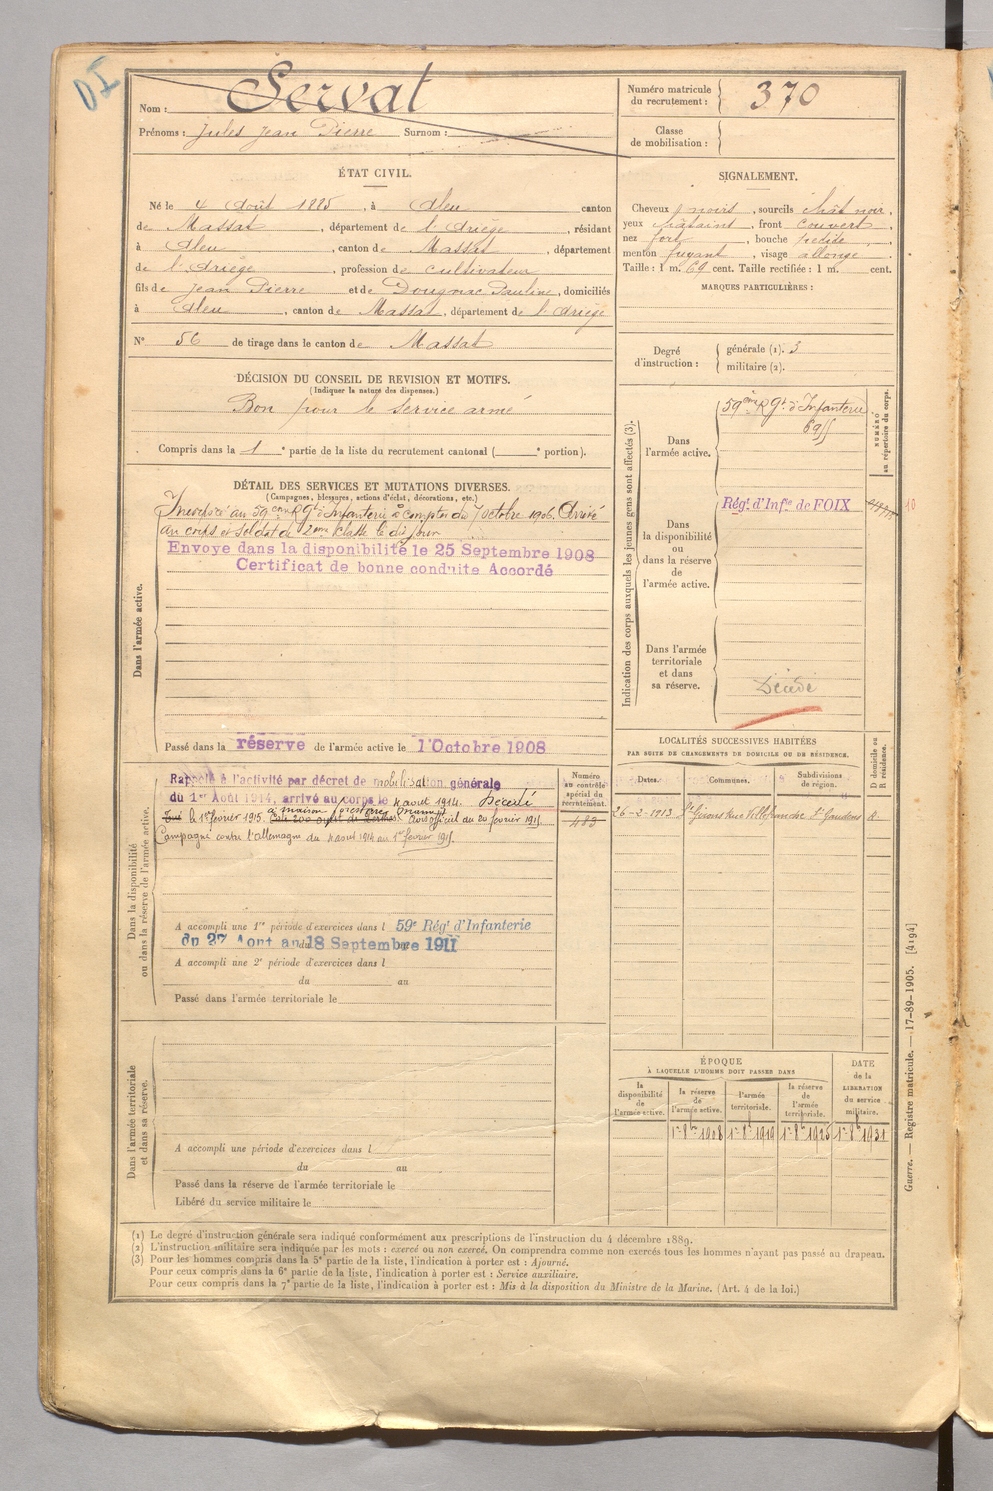 DI
Nom : Servat
Prénoms : Jules Jean Pierre Surnom :
Numéro matricule du recrutement : 370
Classe de mobilisation :
ÉTAT CIVIL.
Né le 4 Août 1885, à Aleu canton
de Massat, département de l'Ariège, résidant
à Aleu, canton de Massat, département
de l'Ariège, profession de cultivateur
fils de Jean Pierre et de Dougnac Pauline, domiciliés
à Aleu, canton de Massat, département de l'Ariège
N° 56 de tirage dans le canton de Massat
SIGNALEMENT.
Cheveux noirs, sourcils chât noir,
yeux châtains, front couvert,
nez fort, bouche petite,
menton fuyant, visage allongé.
Taille : 1 m. 69 cent. Taille rectifiée : 1 m. cent.
MARQUES PARTICULIÈRES :
Degré d'instruction : générale (1). 3
militaire (2).
DÉCISION DU CONSEIL DE REVISION ET MOTIFS.
(Indiquer la nature des dispenses.)
Bon pour le service armé
Compris dans la 1e partie de la liste du recrutement cantonal ( e portion).
DÉTAIL DES SERVICES ET MUTATIONS DIVERSES.
(Campagnes, blessures, actions d'éclat, décorations, etc.)
Dans l'armée active.
Incorporé au 59eme Rgt d'Infanterie à compter du 7 octobre 1906. Arrivé
au corps et soldat de 2eme classe le dit jour
Envoye dans la disponibilité le 25 Septembre 1908
Certificat de bonne conduite Accordé
Passé dans la réserve de l'armée active le 1 Octobre 1908
Indication des corps auxquels les jeunes gens sont affectés (3).
NUMÉRO au répertoire du corps.
Dans l'armée active.
59eme Rgt d'Infanterie
Dans la disponibilité ou dans la réserve de l'armée active.
Régt d'Infie de FOIX
10
Dans l'armée territoriale et dans sa réserve.
Décédé
Dans la disponibilité ou dans la réserve de l'armée active.
Rappelé à l'activité par décret de mobilisation générale
du 1er Août 1914, arrivé au corps le 4 aout 1914. Décédé
à maison forestière
le 1er février 1915. Avis officiel du 20 février 1915
Campagne contre l'Allemagne du 4 aout 1914 au 1er février 1915.
Numéro au contrôle spécial du recrutement.
483
A accompli une 1re période d'exercices dans l 59e Régt d'Infanterie
du 27 Aout au 18 Septembre 1911
A accompli une 2e période d'exercices dans l
du au
Passé dans l'armée territoriale le
LOCALITÉS SUCCESSIVES HABITÉES
PAR SUITE DE CHANGEMENTS DE DOMICILE OU DE RÉSIDENCE.
Dates. Communes. Subdivisions de région. D domicile ou R résidence.
26-2-1913 St Girons Rue Villefranche St Gaudens R
Dans l'armée territoriale et dans sa réserve.
A accompli une période d'exercices dans l
du au
Passé dans la réserve de l'armée territoriale le
Libéré du service militaire le
ÉPOQUE
À LAQUELLE L'HOMME DOIT PASSER DANS
la disponibilité de l'armée active. la réserve de l'armée active. l'armée territoriale. la réserve de l'armée territoriale.
DATE de la LIBÉRATION du service militaire.
1er 8bre 1908 1er 8bre 1919 1er 8bre 1925 1er 8bre 1931
Guerre. — Registre matricule. — 17-89-1905. [4194]
(1) Le degré d'instruction générale sera indiqué conformément aux prescriptions de l'instruction du 4 décembre 1889.
(2) L'instruction militaire sera indiquée par les mots : exercé ou non exercé. On comprendra comme non exercés tous les hommes n'ayant pas passé au drapeau.
(3) Pour les hommes compris dans la 5e partie de la liste, l'indication à porter est : Ajourné.
Pour ceux compris dans la 6e partie de la liste, l'indication à porter est : Service auxiliaire.
Pour ceux compris dans la 7e partie de la liste, l'indication à porter est : Mis à la disposition du Ministre de la Marine. (Art. 4 de la loi.)